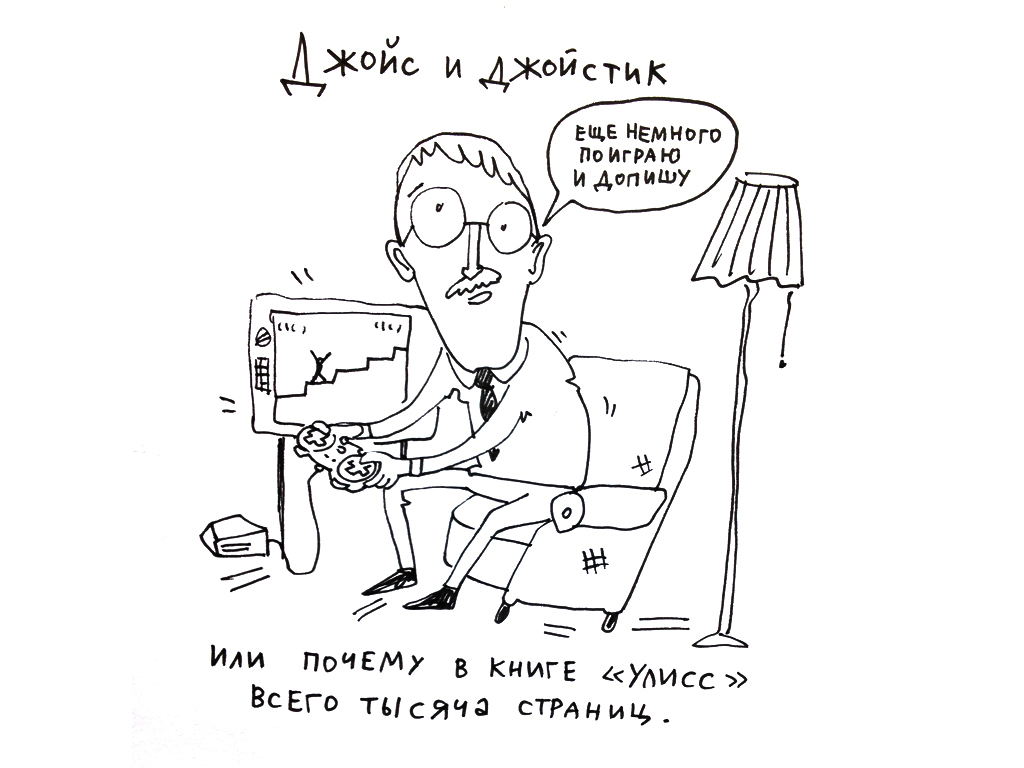 Джойс и джойстик
ЕЩЕ НЕМНОГО
ПОИГРАЮ
И ДОПИШУ
ИЛИ ПОЧЕМУ В КНИГЕ «УЛИСС»
ВСЕГО ТЫСЯЧА СТРАНИЦ.